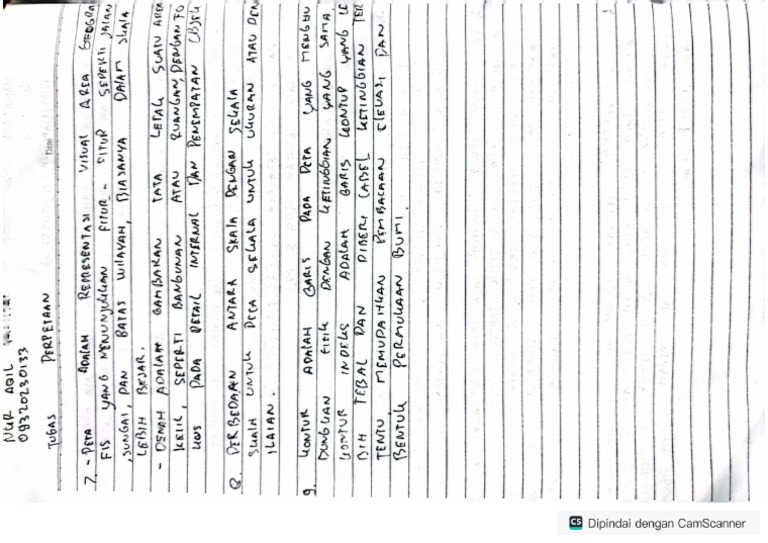 NUR AQIL
09320230133
TUGAS PERPETAAN
7. - PETA ADALAH REPRESENTASI VISUAL AREA GEOGRA
FIS YANG MENUNJUKKAN FITUR - FITUR SEPERTI JALAN
, SUNGAI, DAN BATAS WILAYAH, BIASANYA DALAM SKALA
LEBIH BESAR.
- DENAH ADALAH GAMBARAN TATA LETAK SUATU AREA
KECIL, SEPERTI BANGUNAN ATAU RUANGAN, DENGAN FO
KUS PADA DETAIL INTERNAL DAN PENEMPATAN OBJEK
8. PERBEDAAN ANTARA SKALA DENGAN SEKALA
SKALA UNTUK PETA SEKALA UNTUK UKURAN ATAU PEN
ILAIAN.
9. KONTUR ADALAH GARIS PADA PETA YANG MENGHU
BUNGKAN TITIK DENGAN KETINGGIAN YANG SAMA.
KONTUR INDEKS ADALAH GARIS KONTUR YANG LE
BIH TEBAL DAN DIBERI LABEL KETINGGIAN TER
TENTU MEMUDAHKAN PEMBACAAN ELEVASI DAN
BENTUK PERMUKAAN BUMI.
Date
CS Dipindai dengan CamScanner